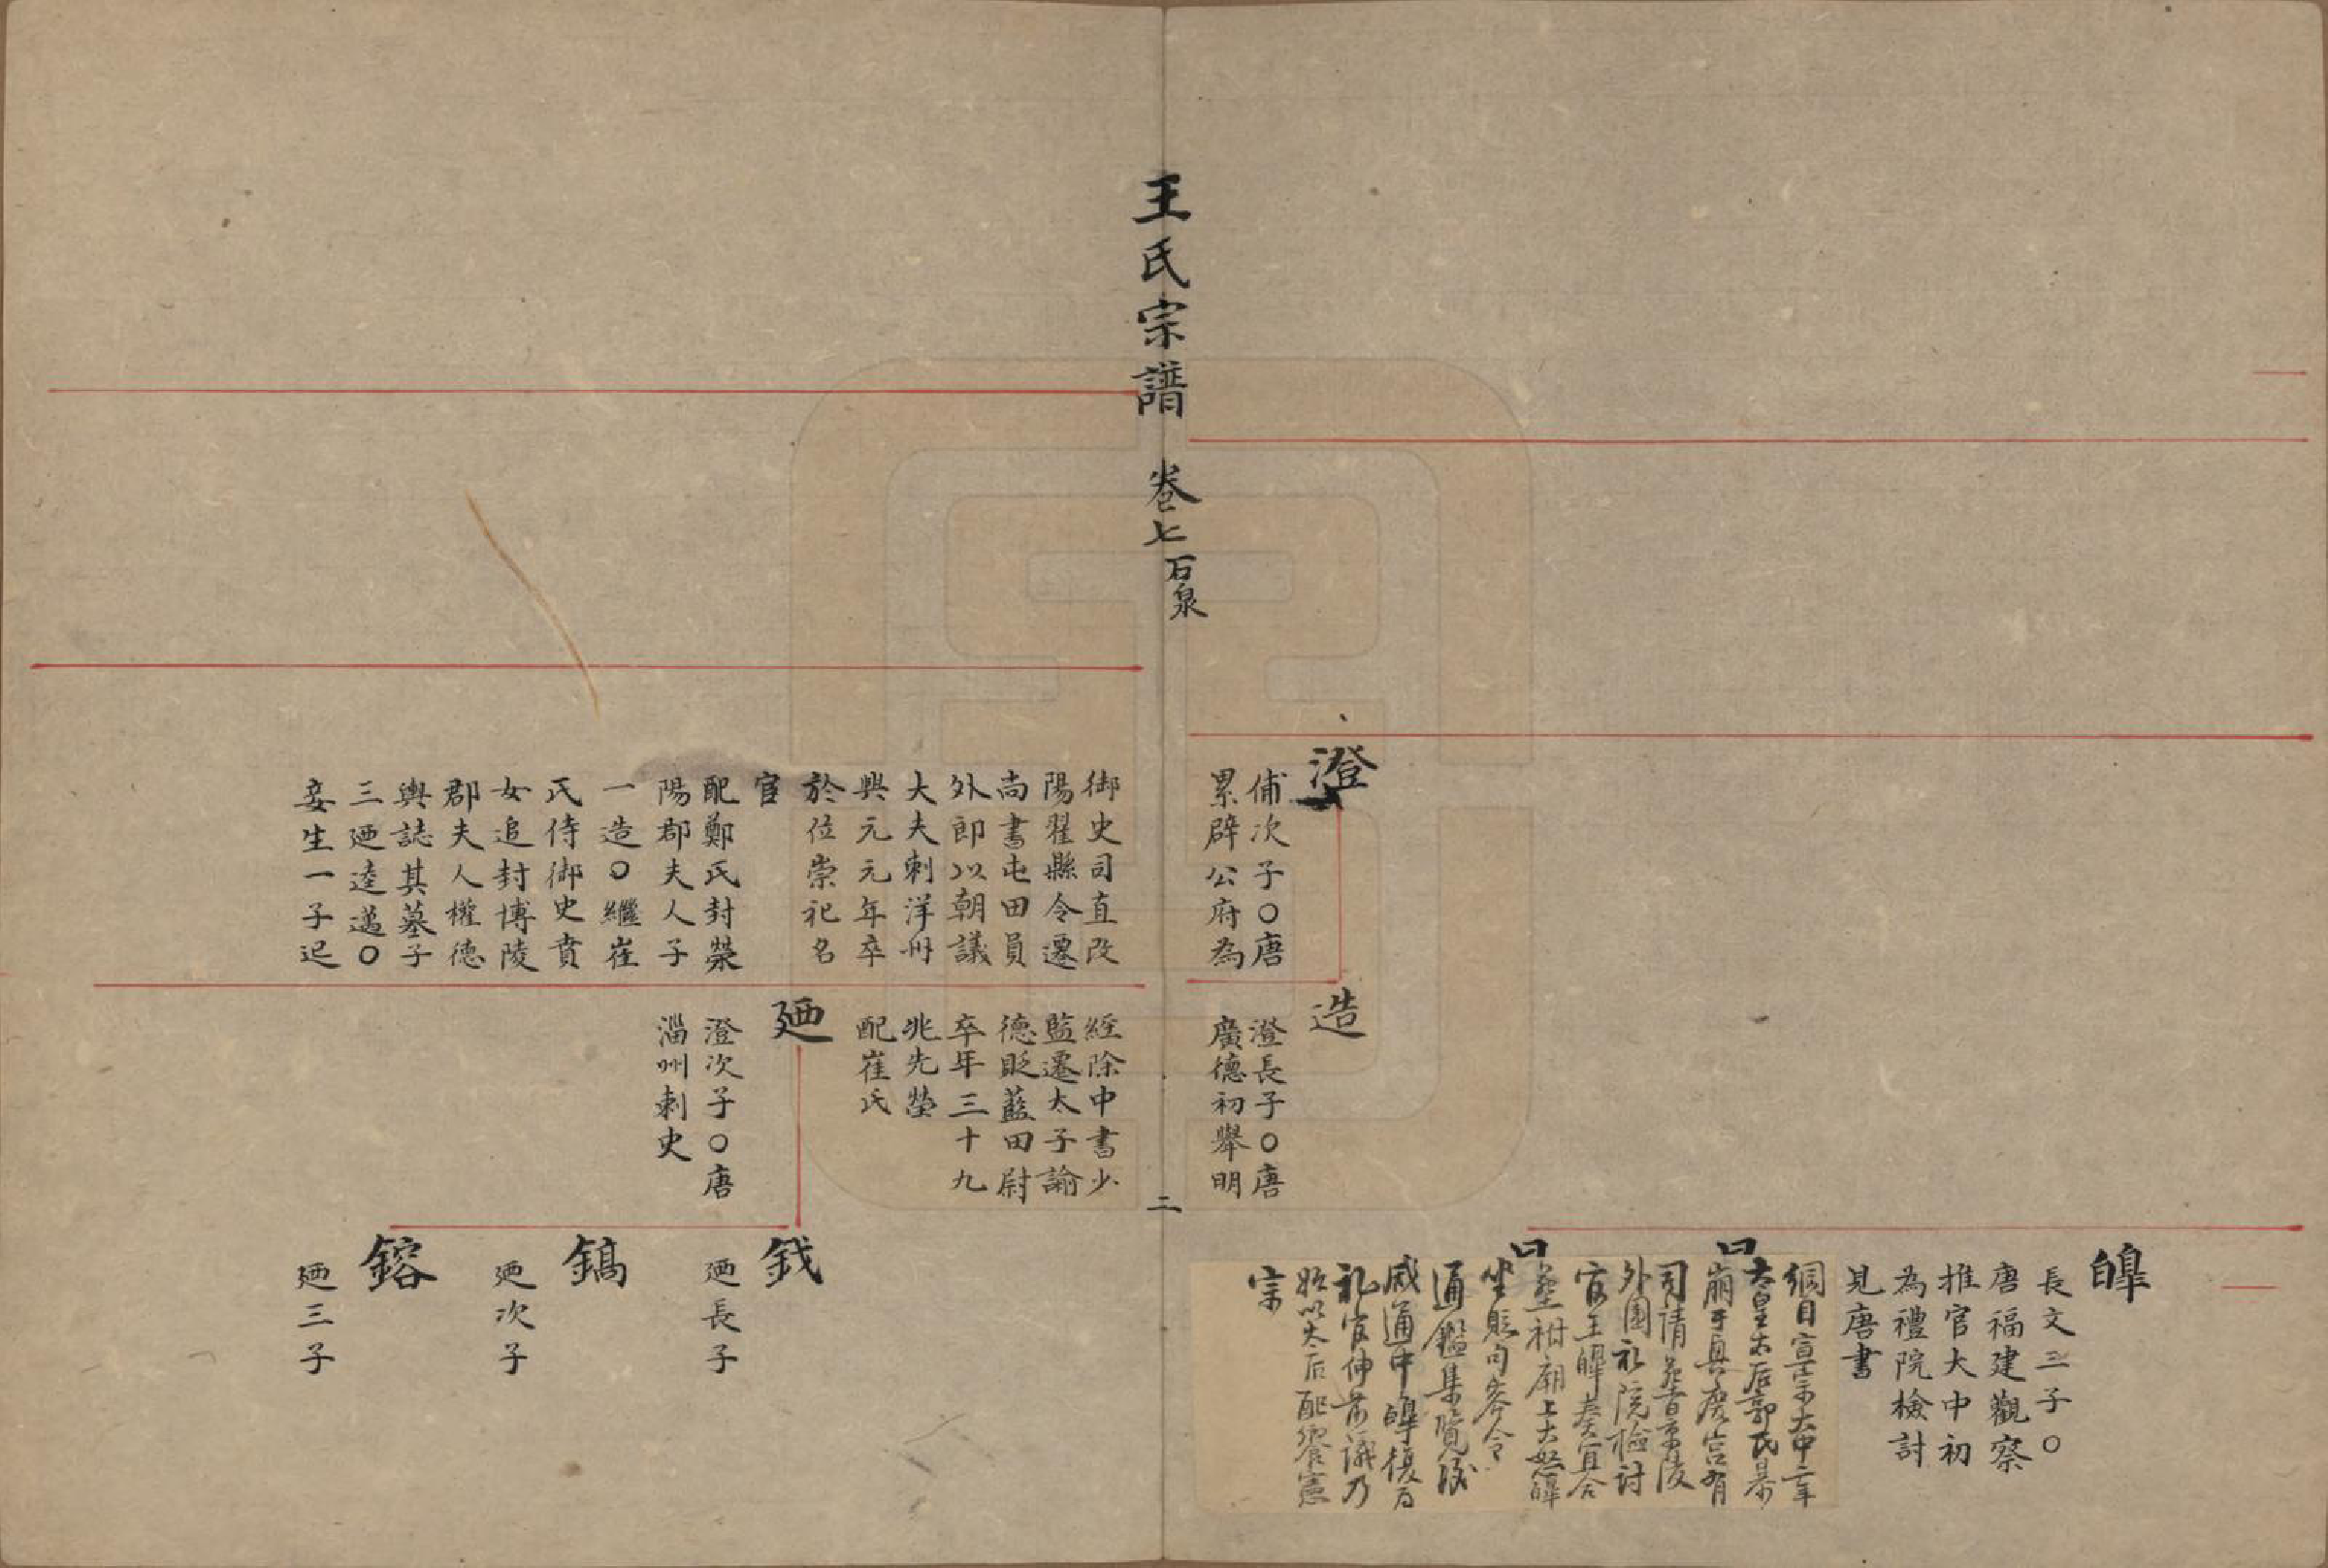 皥
長文三子〇
唐福建觀察
推官大中初
為禮院檢討
見唐書
綱目宣宗大中二年
太皇太后郭氏暴
崩于興慶宮有
司請葬景陵
外園礼院檢討
官王皥奏宜合
葬祔廟上大怒皥
坐貶句容令
通鑑集覽
咸通中皥復為
礼官伸前議乃
始以太后配饗憲
宗
澄
俌次子〇唐
累辟公府為
御史司直改
陽翟縣令遷
尚書屯田員
外郎以朝議
大夫刺洋州
興元元年卒
於位崇祀名
宦
配鄭氏封滎
陽郡夫人子
一造〇繼崔
氏侍御史賁
女追封博陵
郡夫人權德
輿誌其墓子
三廼逵邁〇
妾生一子迟
造
澄長子〇唐
廣德初舉明
經除中書少
監遷太子諭
德貶藍田尉
卒年三十九
兆先塋
配崔氏
廼
澄次子〇唐
淄州刺史
鉞
廼長子
鎬
廼次子
鎔
廼三子
王氏宗譜 卷七 石泉
二